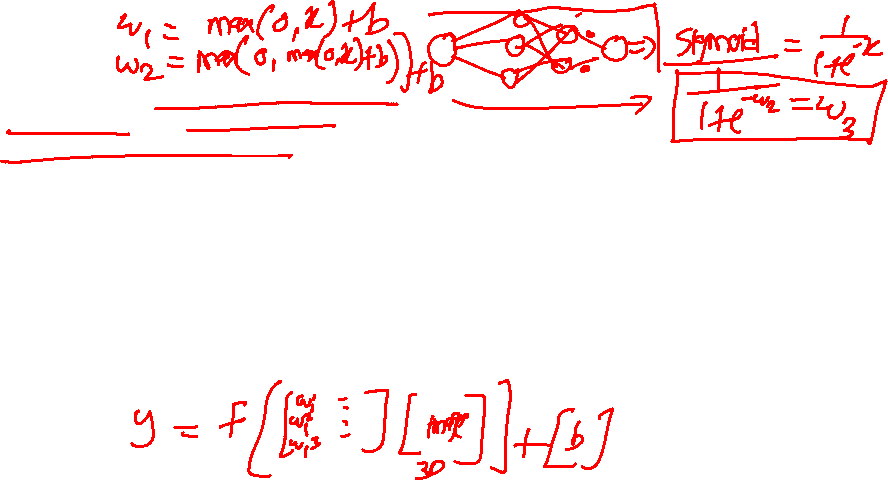 w₁ = max(0,x)+b
w₂ = max(0, max(0,x)+b))+b
⇒ sigmoid = 1/(1+e^-x)
1/(1+e^-w₂) = w₃
y = f([w₁ w₁² w₁³ ⋮ ⋮][]) + [b]